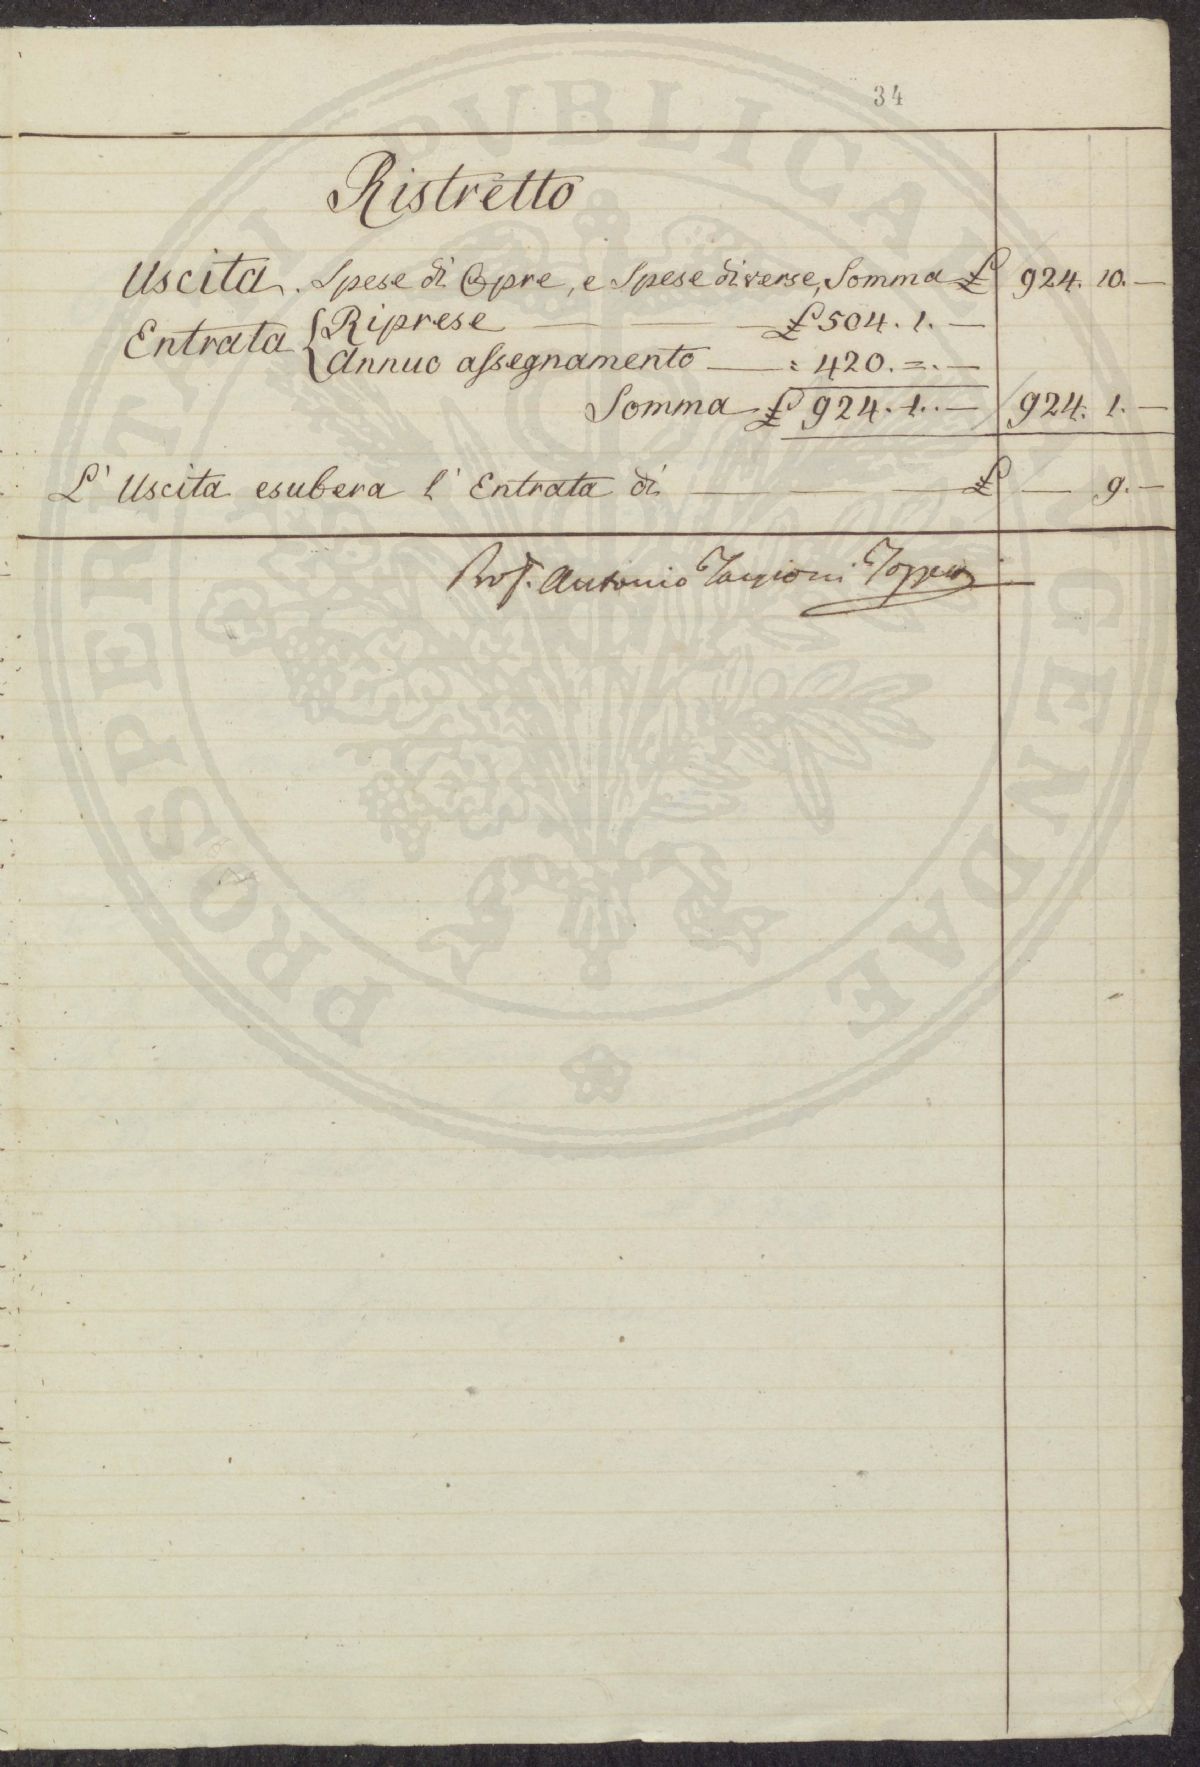 34
Ristretto
Uscita. Spese di Opre, e Spese diverse, Somma £ 924. 10. —
Entrata { Riprese — — £ 504. 1. —
Annuo assegnamento — : 420. =. —
Somma £ 924. 1. — 924. 1. —
L' Uscita esubera l' Entrata di — — — £ — 9. —
Prof. Antonio Targioni Tozzetti
PROSPERITATI PVBLICAE AVGENDAE